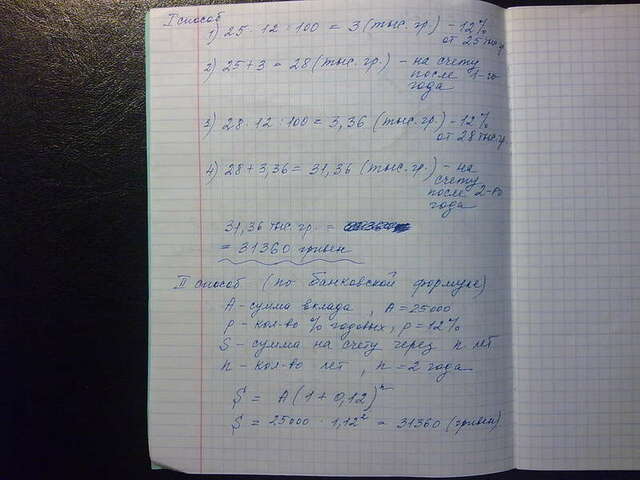 I способ
1) 25 · 12 : 100 = 3 (тыс. гр.) – 12%
от 25 тыс. гр.
2) 25 + 3 = 28 (тыс. гр.) – на счету
после 1-го
года
3) 28 · 12 : 100 = 3,36 (тыс. гр.) – 12%
от 28 тыс. гр.
4) 28 + 3,36 = 31,36 (тыс. гр.) – на
счету
после 2-го
года
31,36 тыс. гр. =
= 31360 гривен
II способ (по банковской формуле)
A – сумма вклада, A = 25000
p – кол-во % годовых, p = 12%
S – сумма на счету через n лет
n – кол-во лет, n = 2 года
S = A(1 + 0,12)ⁿ
S = 25000 · 1,12² = 31360 (гривен)